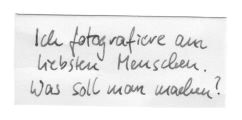 Ich fotografiere am
liebsten Menschen.
Was soll man machen?